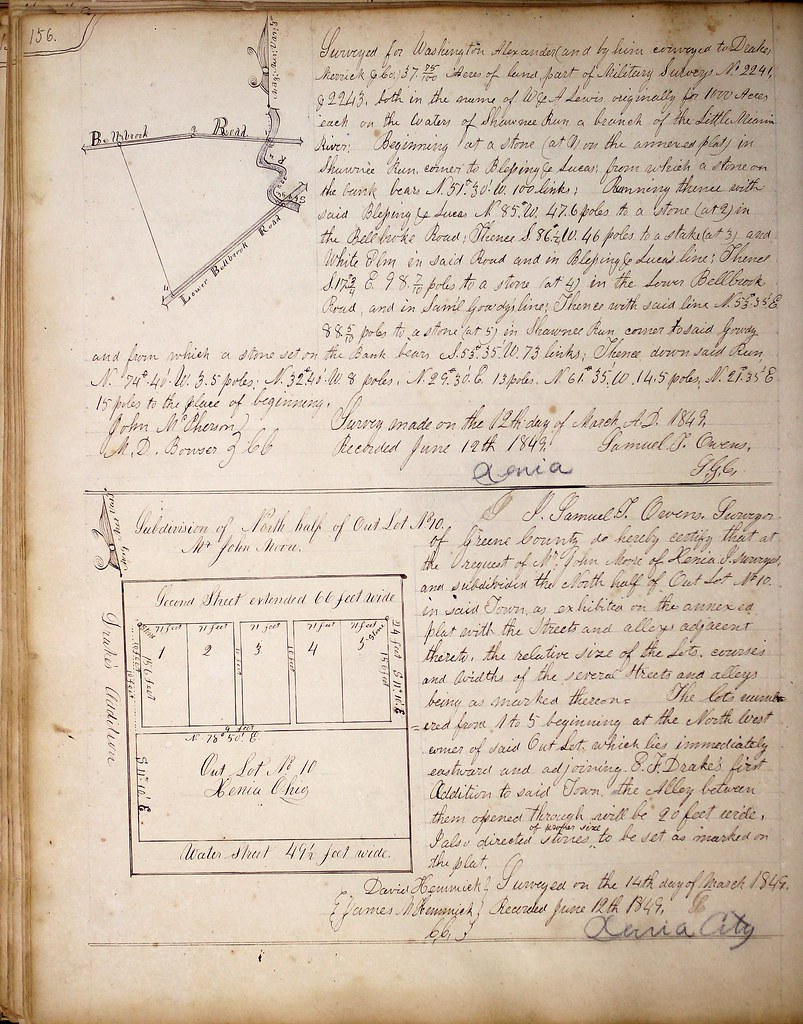 156.
Surveyed for Washington Alexander (and by him conveyed to Drake,
Merrick & Co.) 37. 95/100 Acres of land, part of Military Surveys No. 2241,
& 2243, both in the name of W & A Lewis originally for 1000 Acres
each on the waters of Shawnee Run a branch of the Little Miami
River; Beginning at a stone (at 1) on the annexed plat) in
Shawnee Run, corner to Blessing & Lucas, from which a stone on
the bank bears N. 51° 30' W. 100 links; Running thence with
said Blessing & Lucas N. 85° W. 47.6 poles to a stone (at 2) in
the Bellbroke Road; Thence S. 86 1/2 W. 46 poles to a stake (at 3) and
White Elm in said Road and in Blessing & Lucas line; Thence
S. 17 3/4 E. 98 7/10 poles to a stone (at 4) in the Lower Bellbrook
Road, and in Sam'l Gowdy's line; Thence with said line N. 53° 35' E
88 5/10 poles to a stone (at 5) in Shawnee Run corner to said Gowdy
and from which a stone set on the Bank bears S. 53° 35' W. 73 links; Thence down said Run
N. 74° 40' W. 3.5 poles; N. 32° 40' W. 8 poles, N. 29° 30' E. 13 poles. N. 61° 35' W. 14.5 poles, N. 21° 35' E
15 poles to the place of beginning.
John McPherson
M. D. Bowser } CC
Survey made on the 12th day of March A.D. 1849.
Recorded June 12th 1849.
Samuel T. Owens,
S.G.C.
Xenia
Bellbrook Road
2
Lower Bellbrook Road
Subdivision of North half of Out Lot No 10.
Mr John Moore.
Drake's Addition
Second Street extended 66 feet wide
71 feet
71 feet
71 feet
71 feet
Stone
Stone
1
2
3
4
5
156 feet
156 feet
24 feet
S 11° 10' E
N. 78° 50' E
S 11° 10' E.
Out Lot No 10
Xenia Ohio
Water Street 49 1/2 feet wide.
I, Samuel T. Owens, Surveyor
of Greene County do hereby certify that at
the request of Mr. John Moore of Xenia I surveyed,
and subdivided the North half of Out Lot No 10.
in said Town, as exhibited on the annexed
plat with the Streets and alleys adjacent
thereto, the relative size of the Lots, courses
and widths of the several streets and alleys
being as marked thereon. The lots numb-
ered from 1 to 5 beginning at the North West
corner of said Out Lot, which lies immediately
eastward and adjoining E. F. Drake's first
Addition to said Town, the Alley between
them opened through will be 20 feet wide.
I also directed stones of proper size to be set as marked on
the plat.
David Hemmick
James McHemmick
CC
Surveyed on the 14th day of March 1849.
Recorded June 12th 1849.
Xenia City